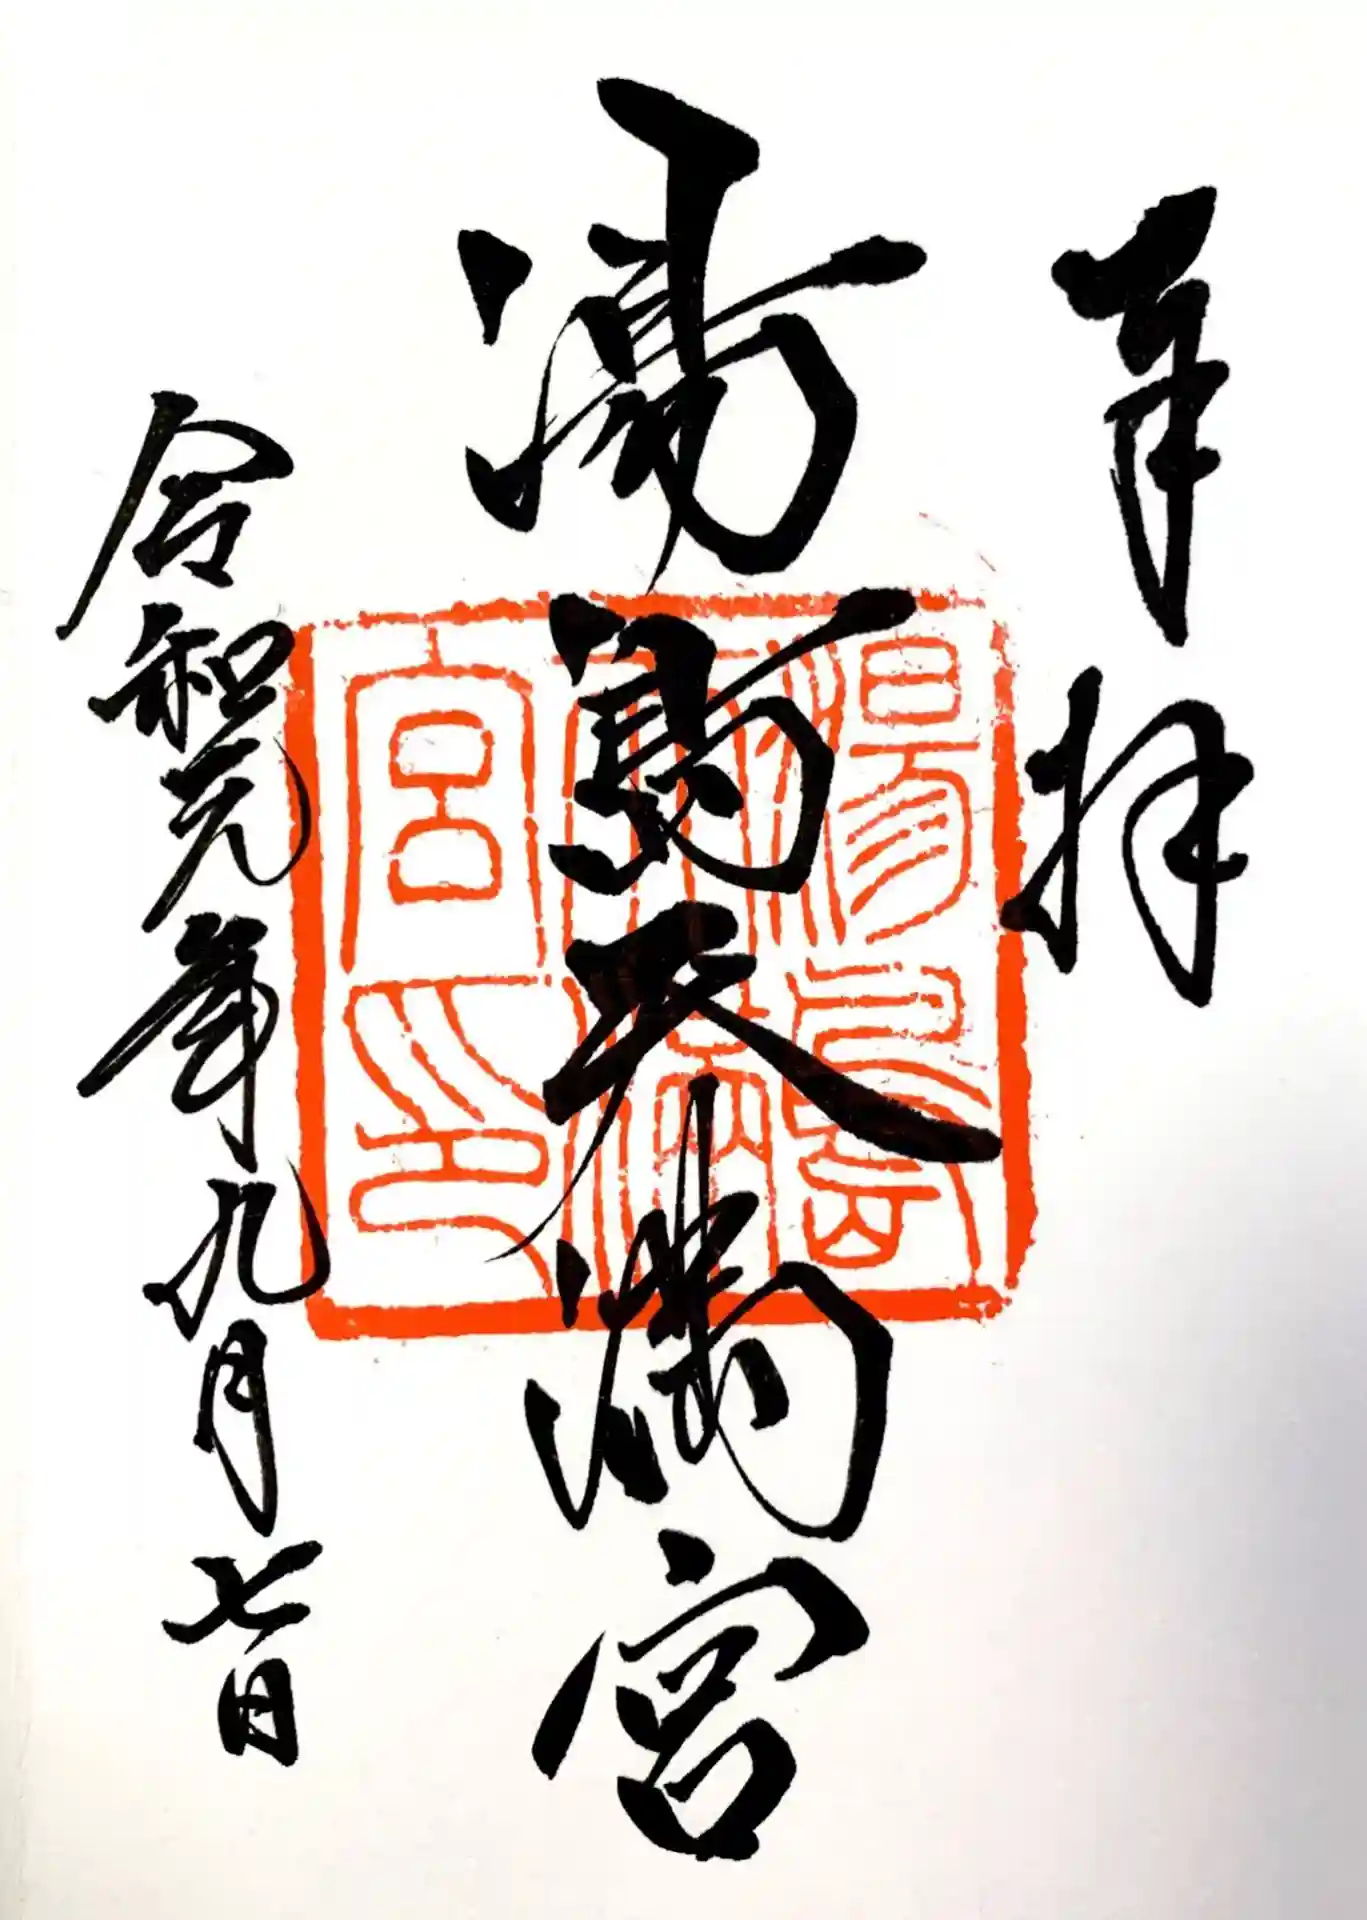 奉拝
湯島天満宮
湯島天満宮印
令和元年九月七日